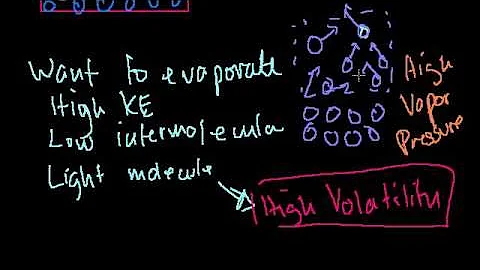 Want to evaporate
High KE
Low intermolecula
Light molecule
High
Vapor
Pressure
High Volatility